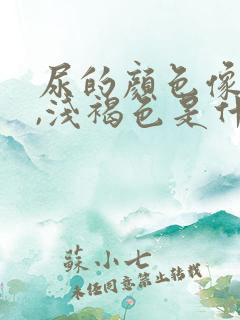 尿的颜色像
,浅褐色是什
蘇小七
未经同意禁止转载